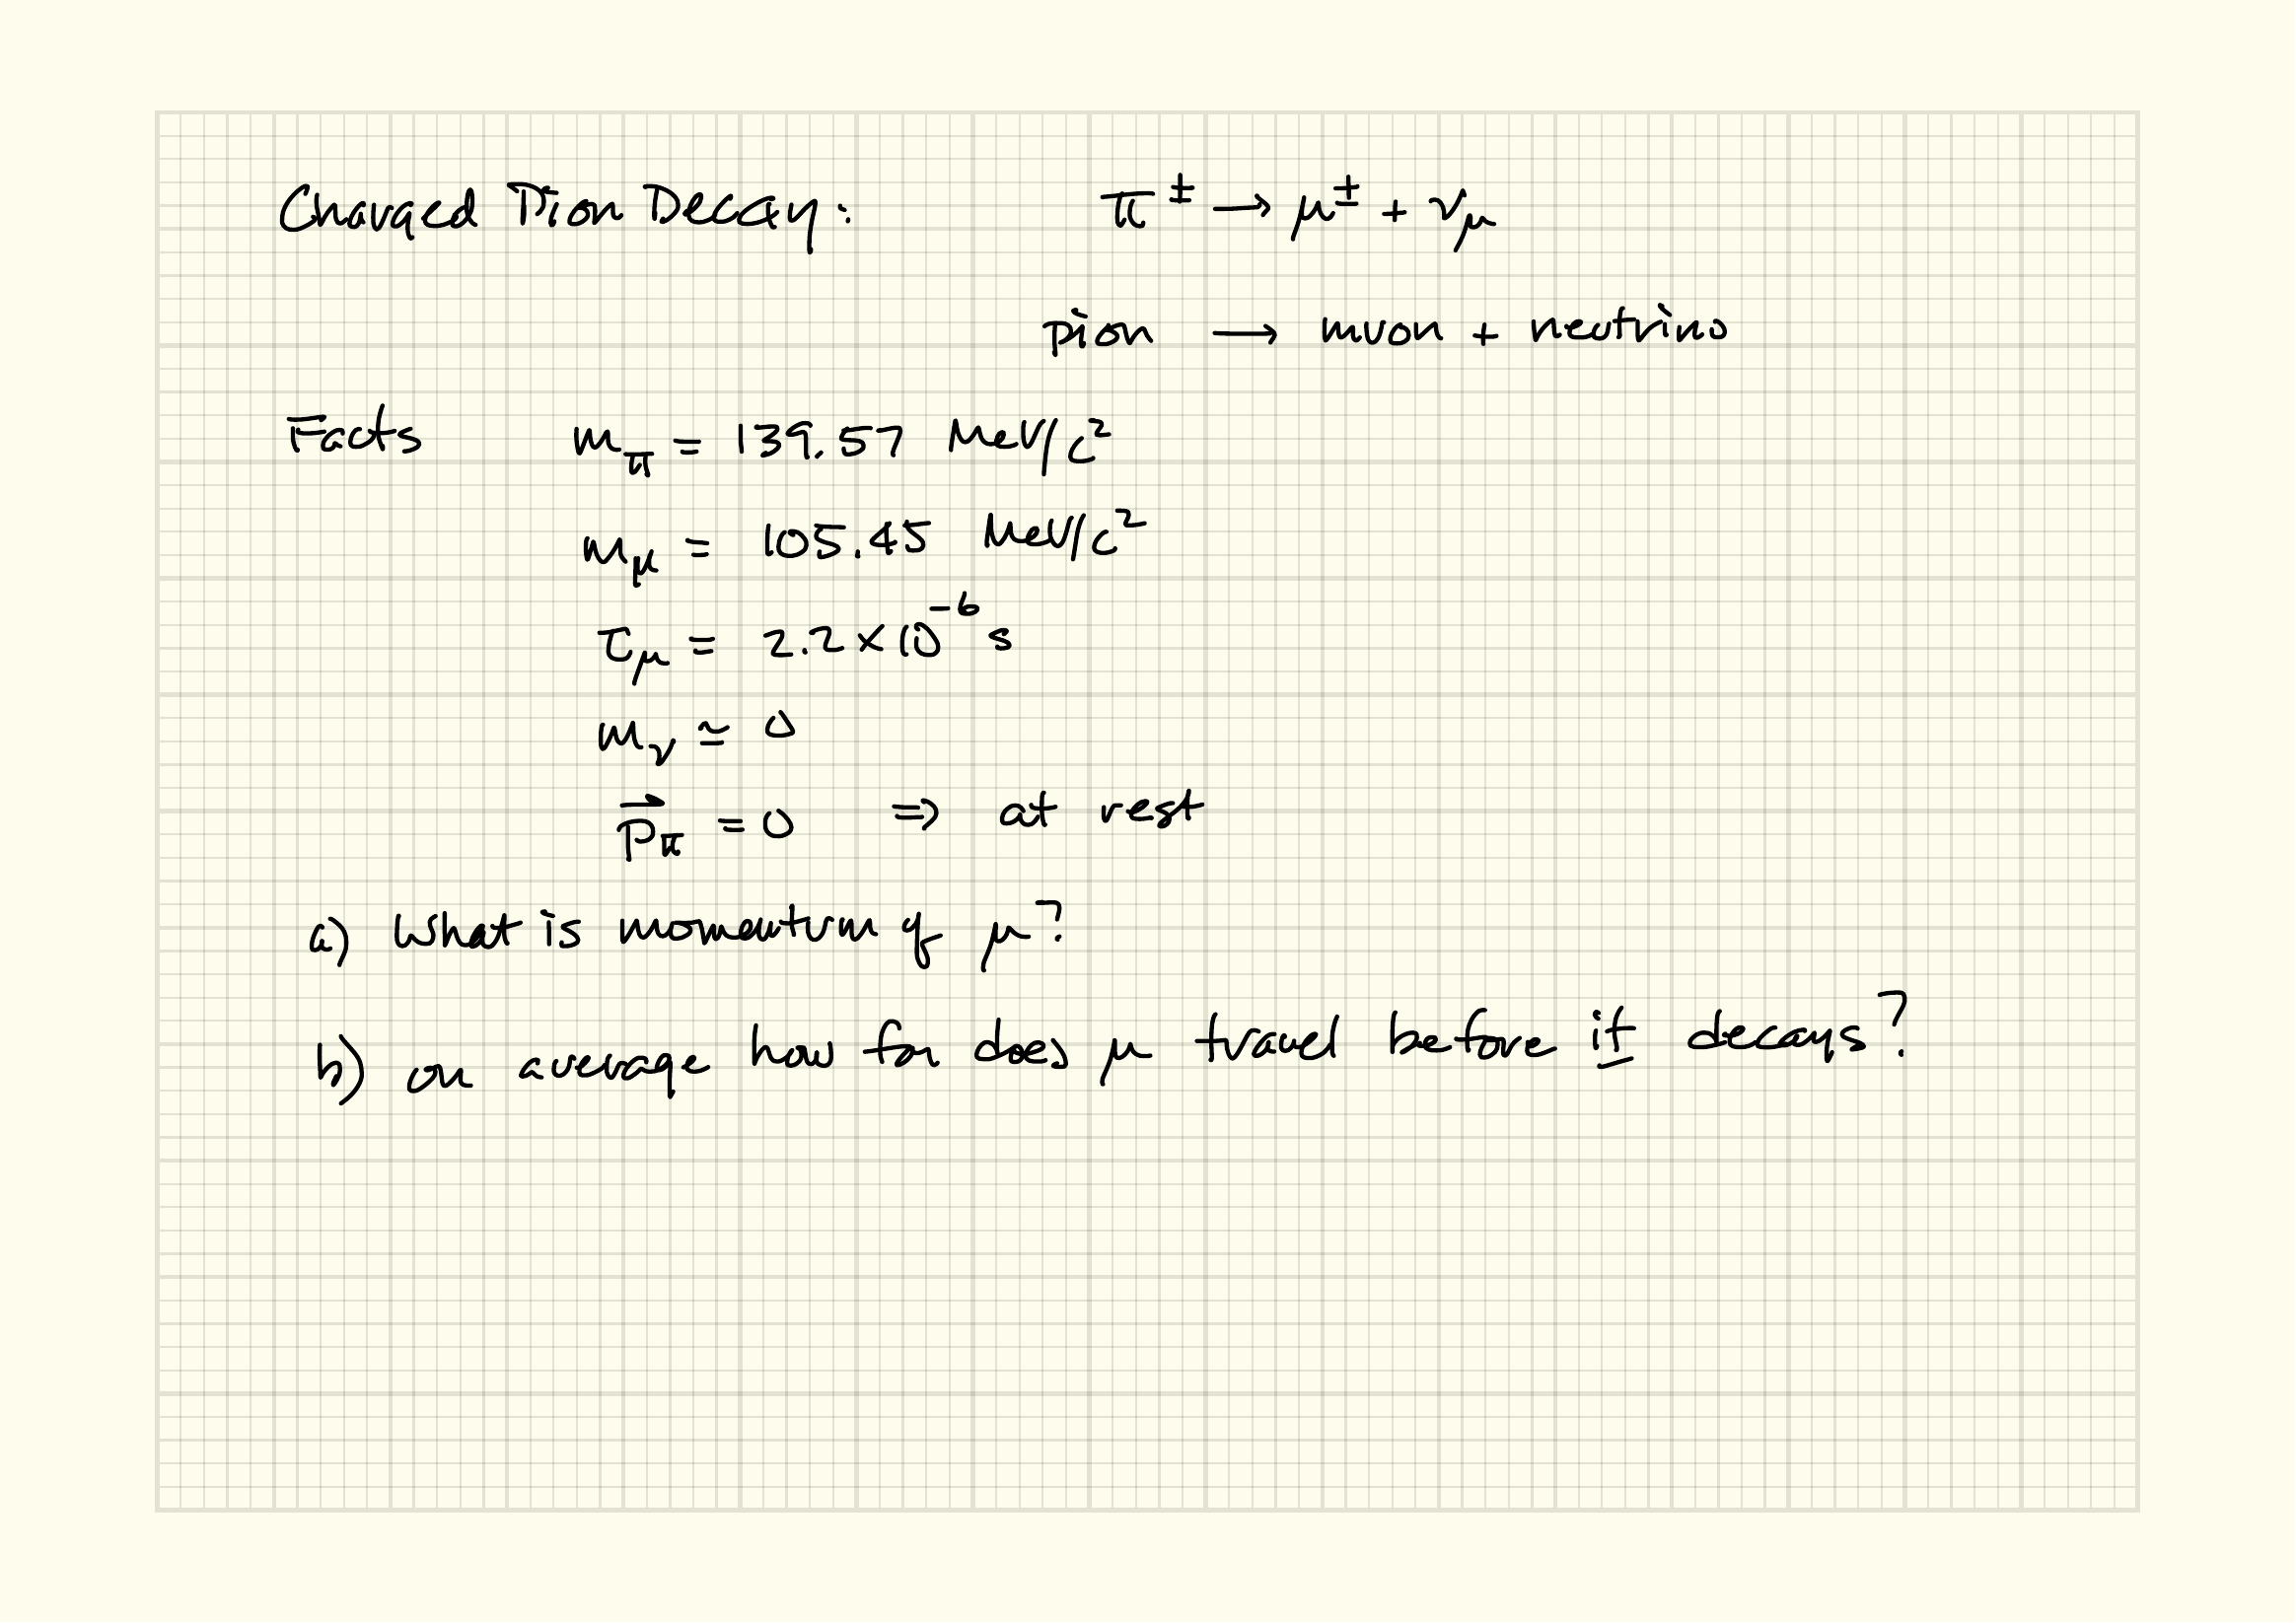 Charged Pion Decay: π± → μ± + νμ
pion → muon + neutrino
Facts mπ = 139.57 MeV/c²
mμ = 105.45 MeV/c²
τμ = 2.2 × 10⁻⁶ s
mν ≃ 0
p⃗π = 0 ⇒ at rest
a) What is momentum of μ?
b) on average how far does μ travel before it decays?